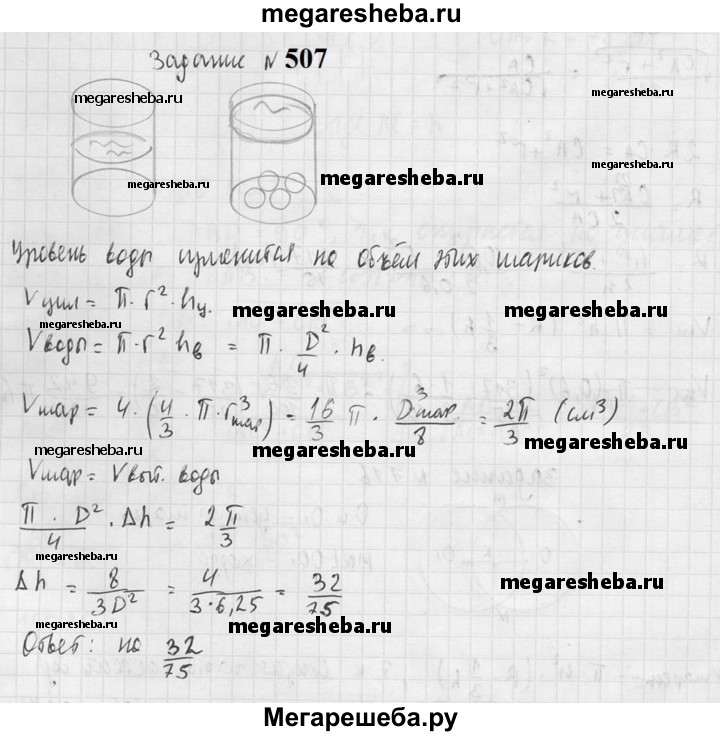 megaresheba.ru
Задание № 507
megaresheba.ru
megaresheba.ru
megaresheba.ru
Уровень воды изменится на объём этих шариков.
Vцил = π · r² · hц.
megaresheba.ru megaresheba.ru
megaresheba.ru
Vводы = π · r² hв = π · D²/4 · hв.
Vшар = 4 · (4/3 · π · r³шар) = 16/3 π · D³шар/8 = 2π/3 (см³)
megaresheba.ru megaresheba.ru megaresheba.ru
Vшар = Vвыт. воды
π · D²/4 · Δh = 2π/3
megaresheba.ru
Δh = 8/3D² = 4/3·6,25 = 32/75
megaresheba.ru
megaresheba.ru megaresheba.ru
Ответ: на 32/75
Мегарешеба.ру